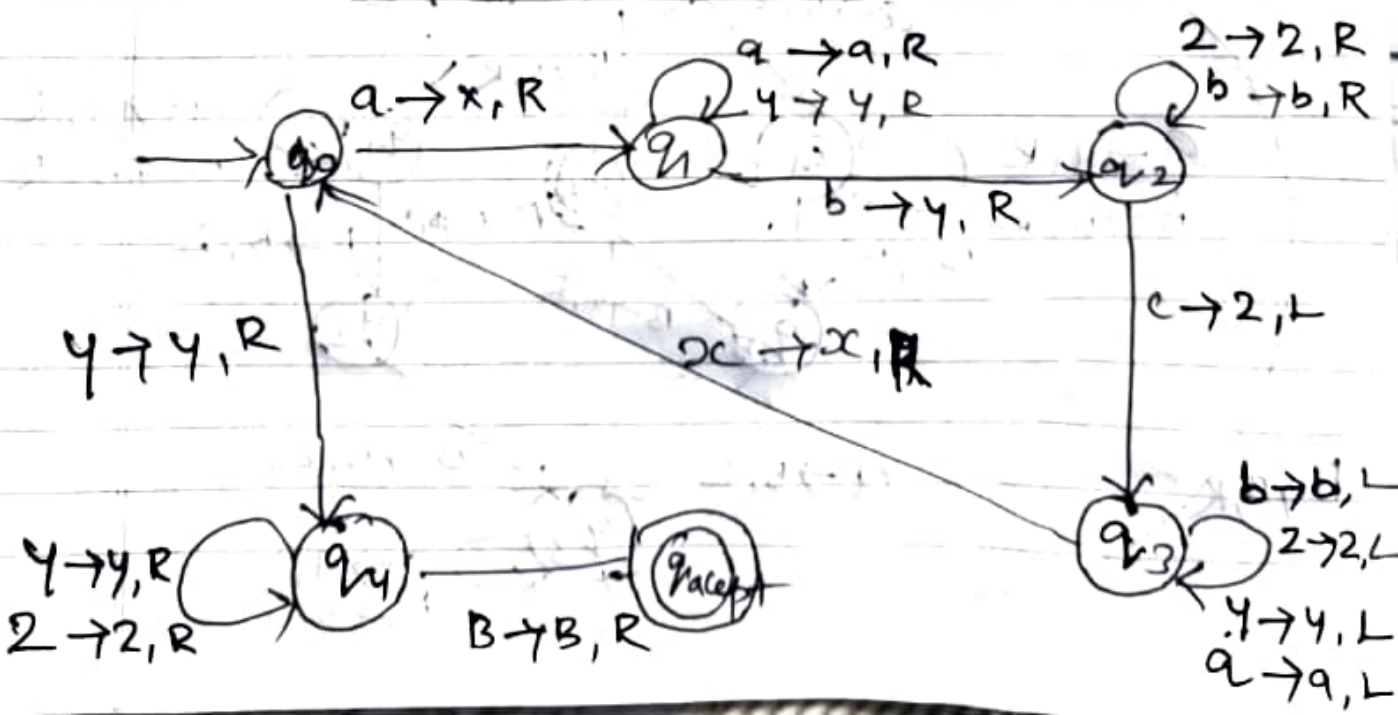 a → x, R
a → a, R
y → y, R
2 → 2, R
b → b, R
q0
q1
q2
b → y, R
c → 2, L
y → y, R
x → x, R
b → b, L
2 → 2, L
y → y, L
a → a, L
q3
y → y, R
2 → 2, R
q4
B → B, R
qaccept